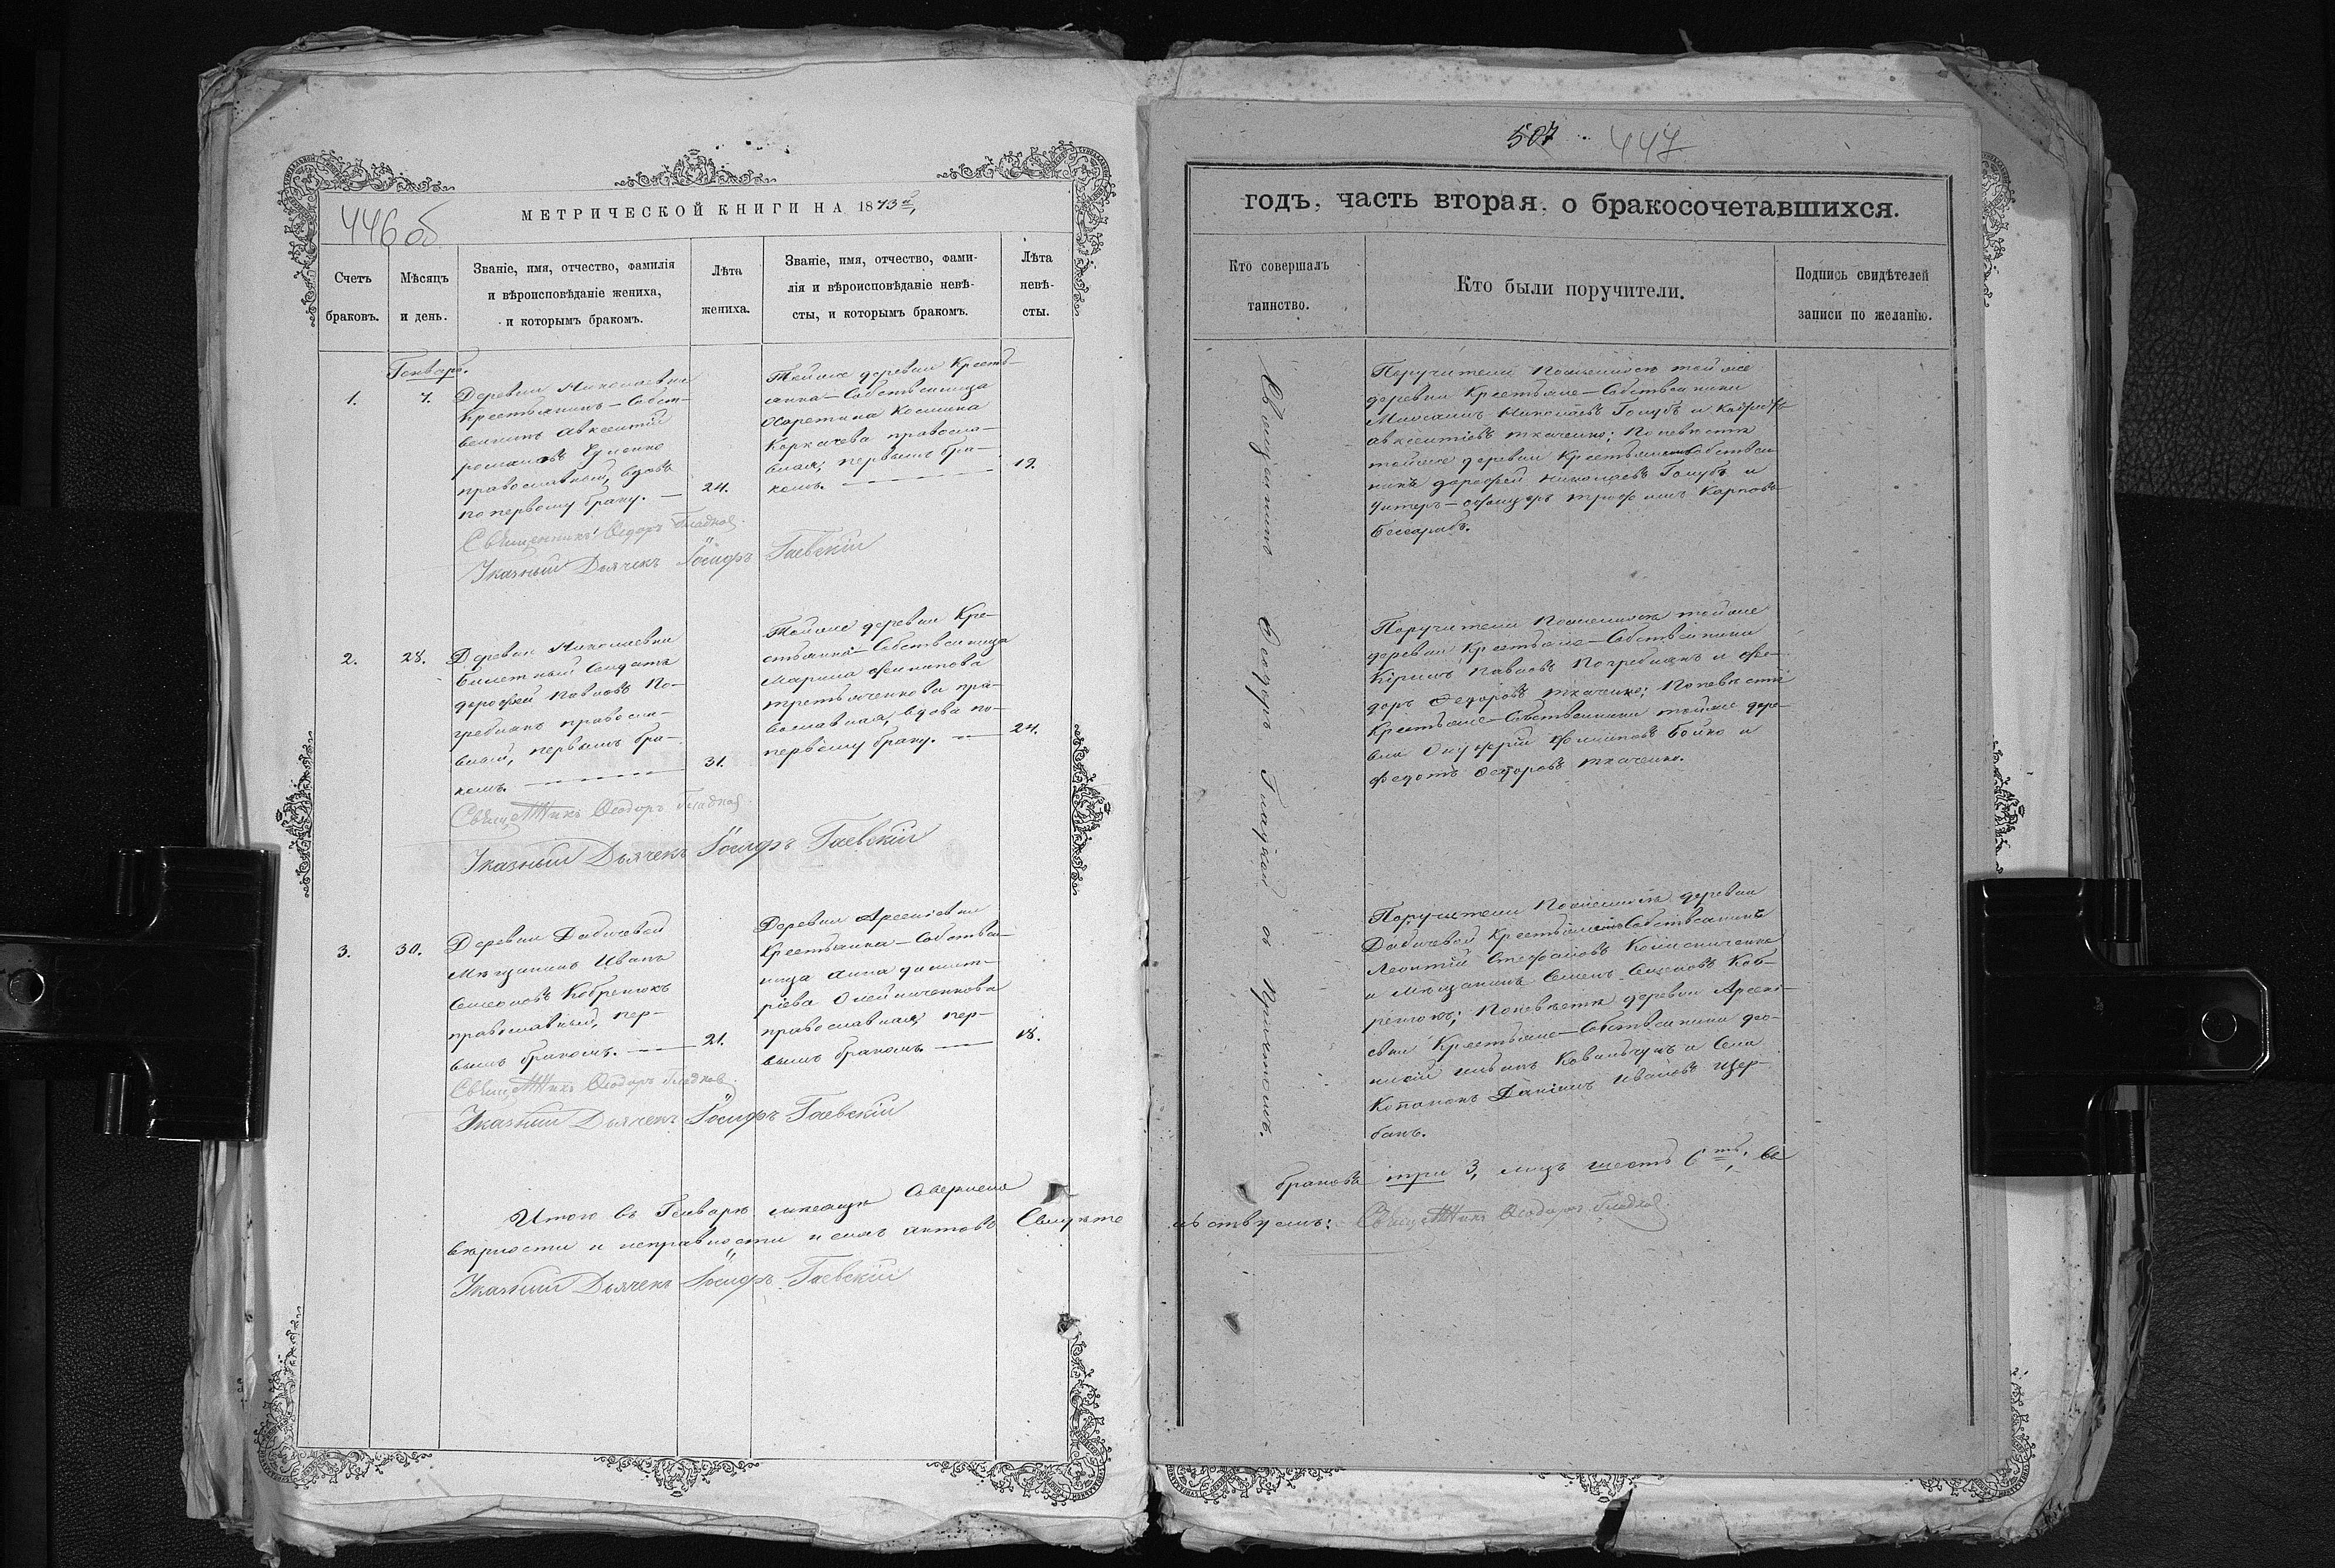 446 об
МЕТРИЧЕСКОЙ КНИГИ НА 1873й
Счетъ браковъ.
Мѣсяцъ и день.
Званіе, имя, отчество, фамилія
и вѣроисповѣданіе жениха,
и которымъ бракомъ.
Лѣта
жениха.
Званіе, имя, отчество, фами-
лія и вѣроисповѣданіе невѣ-
сты, и которымъ бракомъ.
Лѣта
невѣ-
сты.
Генварь.
1.
7.
Деревни Николаевки
Крестьянинъ-Собст-
венникъ Авксентій
Романовъ
православный, вдовъ
по первому браку. —
24.
Тойже деревни Кресть-
янка-Собственница
Харетина Космина
Коркачева правосла-
вная, первымъ бра-
комъ. —
19.
Священникъ Ѳеодоръ Гладкій
Указный Дьячекъ Іосифъ Гаевскій
2.
28.
Деревни Николаевки
билетный Солдатъ
Дорофей Павловъ По-
гребнякъ правосла-
вный, первымъ бра-
комъ. —
31.
Тойже деревни Кре-
стьянка-Собственница
Марина Филипова
Третьяченкова пра-
вославная, вдова по
первому браку. —
24.
Священникъ Ѳеодоръ Гладкій
Указный Дьячекъ Іосифъ Гаевскій
3.
30.
Деревни Дабичевой
Мѣщанинъ Иванъ
Семеновъ Кобренюкъ
православный, пер-
вымъ бракомъ. —
21.
Деревни Арсеніевки
Крестьянка-Собствен-
ница Анна Димит-
ріева Олейниченкова
православная, пер-
вымъ бракомъ. —
18.
Священникъ Ѳеодоръ Гладкій
Указный Дьячекъ Іосифъ Гаевскій
Итого въ Генварѣ мѣсяцѣ Совершено
вѣрности и исправности и сихъ актовъ Свидѣте
Указный Дьячекъ Іосифъ Гаевскій
507 447
годъ, часть вторая, о бракосочетавшихся.
Кто совершалъ
таинство.
Кто были поручители.
Подпись свидѣтелей
записи по желанію.
Священникъ Ѳеодоръ Гладкій съ Причтомъ.
Поручители По женихѣ тойже
деревни Крестьяне-Собственники
Михаилъ Николаевъ Голубъ и
Авксентіевъ Ткаченко; По невѣстѣ
тойже деревни Крестьянинъ Собствен
никъ Дорофей Николаевъ Голубъ и
Унтеръ-офицеръ Трофимъ Карповъ
Бессарабъ.
Поручители По женихѣ тойже
деревни Крестьяне-Собственники
Кирилъ Павловъ Погребнякъ и Фе-
доръ Федоровъ Ткаченко; По невѣстѣ
Крестьяне-Собственники тойже дере-
вни Онуфрій Филиповъ Бойко и
Федотъ Федоровъ Ткаченко.
Поручители По женихѣ деревни
Дабичевой Крестьянинъ Собственникъ
Леонтій Стефановъ Колисниченко
и Мѣщанинъ Семенъ Семеновъ Коб-
ренюкъ; По невѣстѣ деревни Арсені-
евки Крестьяне-Собственники Діо-
нисій Ковальчукъ и Села
Копанокъ Даніилъ Ивановъ Щер-
банъ.
браковъ три 3, лицъ шесть 6ть, въ
льствуемъ: Священникъ Ѳеодоръ Гладкій